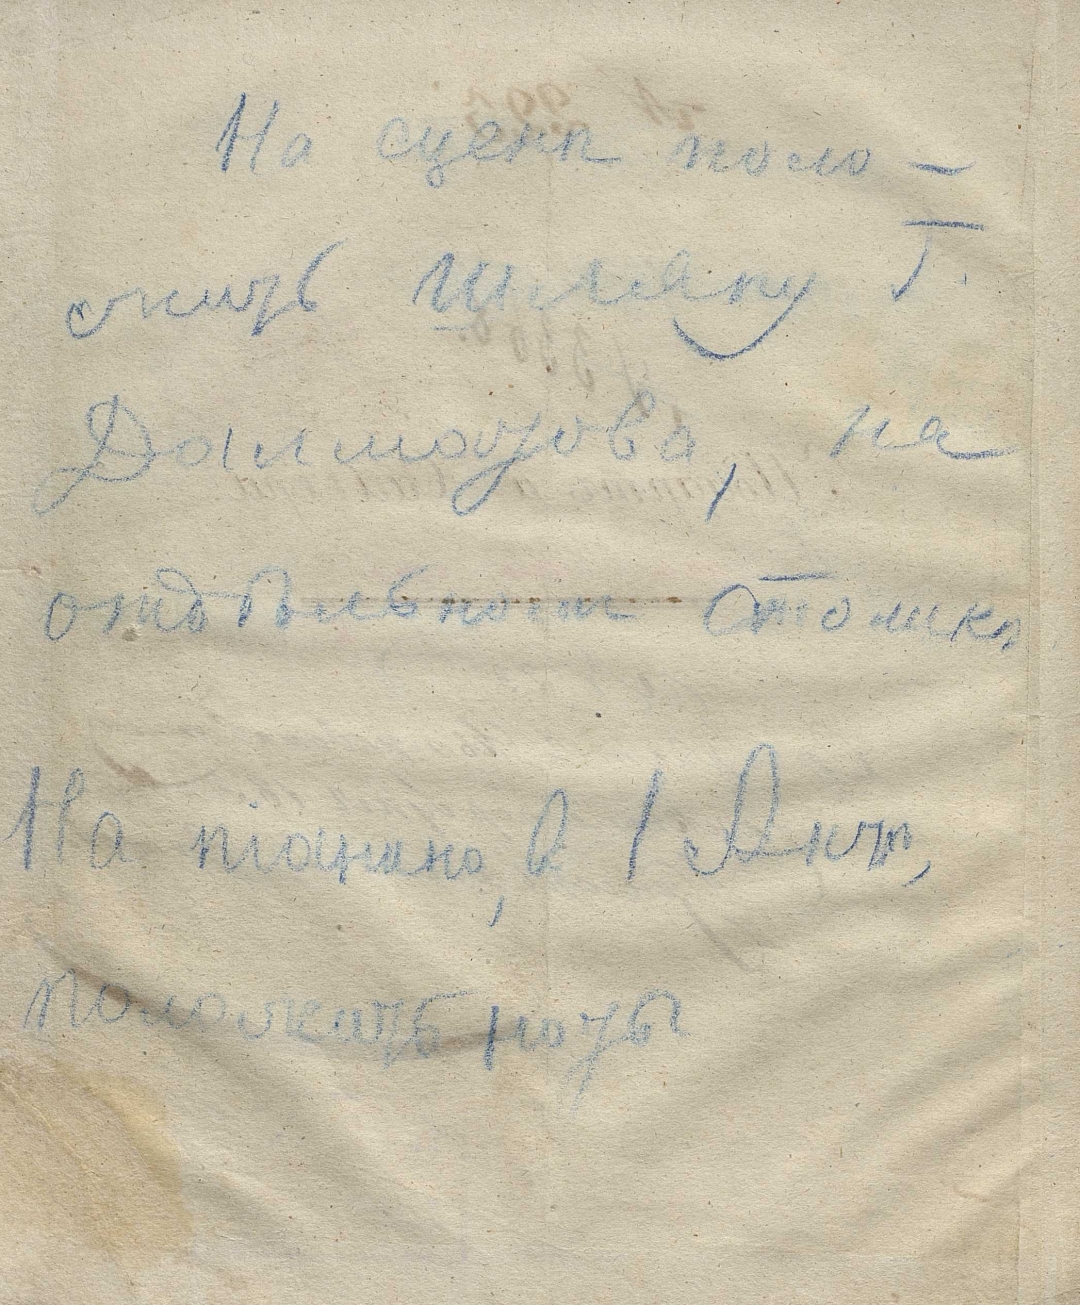 На сцене поло-
жить шляпу Г.
Далматова, на
отдѣльном столике
На піанино, в 1 Акт,
положить ноты